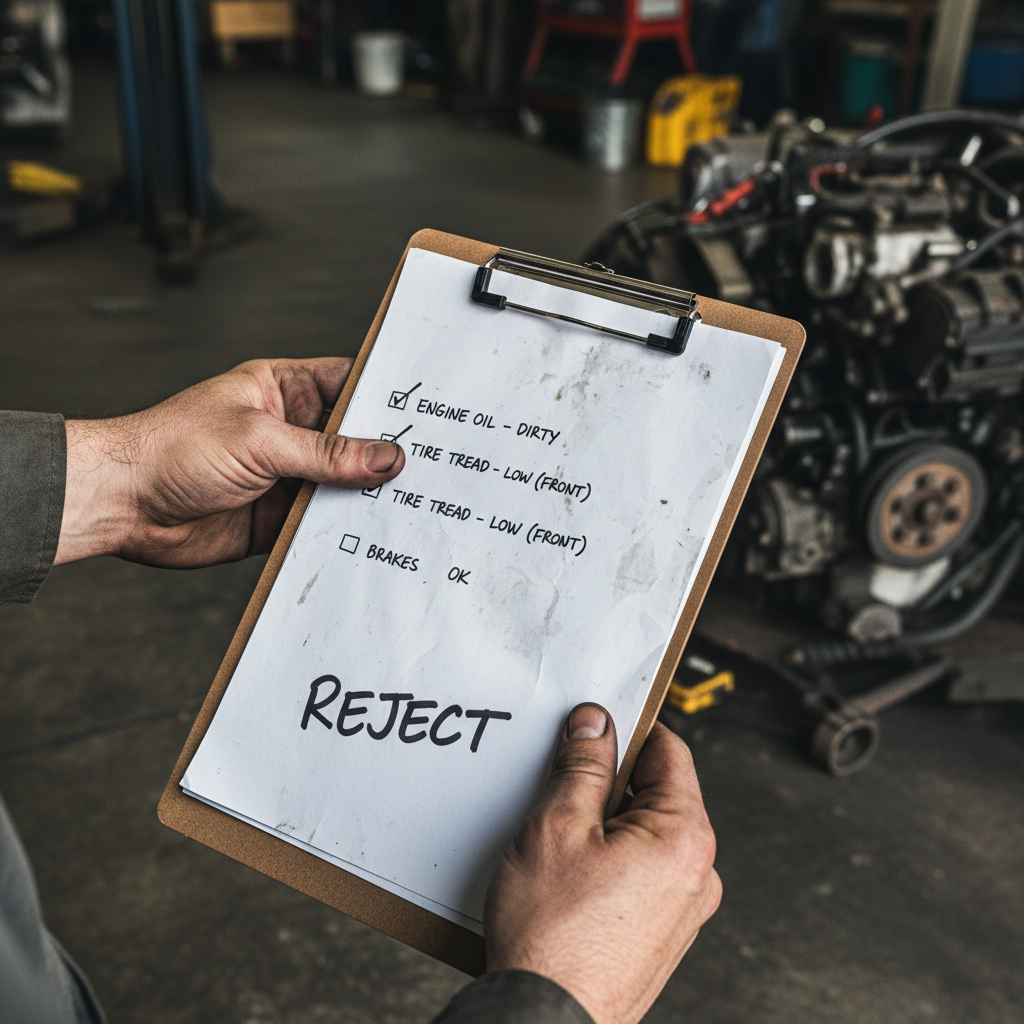 ENGINE OIL - DIRTY
TIRE TREAD - LOW (FRONT)
TIRE TREAD - LOW (FRONT)
BRAKES OK
REJECT